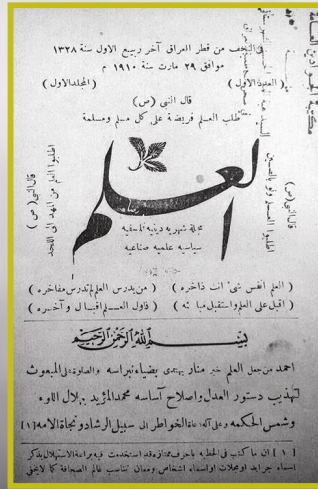 النجف من قطر العراق آخر ربيع الاول سنة ١٣٢٨
موافق ٢٩ مارت سنة ١٩١٠ م
(العدد الاول) (المجلد الاول)
قال النبي (ص)
طلب العلم فريضة على كل مسلم ومسلمة
قال النبي (ص)
اطلبوا العلم ولو بالصين
قال النبي (ص)
اطلبوا العلم من المهد الى اللحد
العلم
مجلة شهرية دينية فلسفية
سياسية علمية صناعية
(العلم انفس شيء انت ذاخره) (من يدرس العلم لم تدرس مفاخره)
(اقبل على العلم واستقبل مباحثه) (فاول العلم اقبال وآخره)
بسم الله الرحمن الرحيم
احمد من جعل العلم خير منار يهتدى بضياء نبراسه والصلوة على المبعوث
لتهذيب دستور العدل واصلاح آساسه محمد المؤيد بهلال اللوء
وشمس الحكمه وعلى آله دعاة الخواطر الى سبيل الرشاد ونجاة الامه [١]
[١] ان ما كتب في الخطبه باحرف ممتازه قد استخدمت فيه براعة الاستهلال بذكر
اسماء جرايد او مجلات او اسماء اشخاص ومعان تناسب عالم الصحافة كما لا يخفى
مكتبة الجوادين العامة